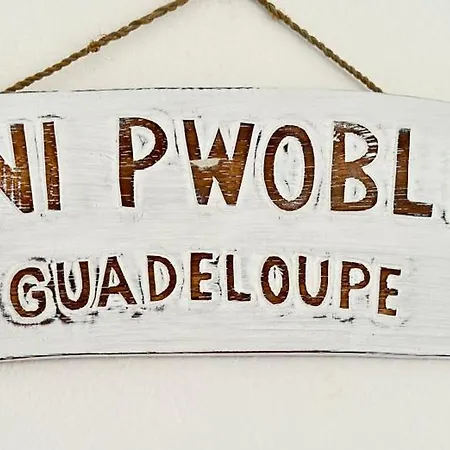 NI PWOBL
GUADELOUPE